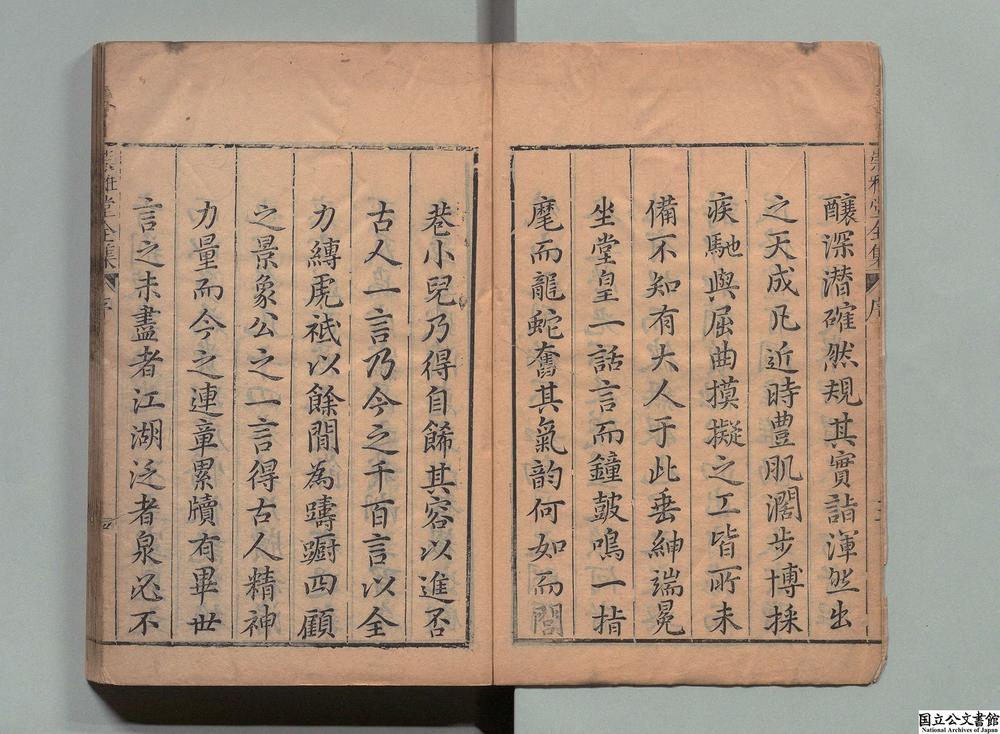 醸深潜確然規其實詣渾然出
之天成凡近時豊肌濶步博採
疾馳與屈曲摸擬之工皆所未
備不知有大人于此垂紳端冕
坐堂皇一話言而鐘鼓鳴一指
麾而龍蛇奮其氣韵何如而閭
巷小兒乃得自餙其容以進否
古人一言乃今之千百言以全
力縛虎祇以餘間為躊躕四顧
之景象公之一言得古人精神
力量而今之連章累牘有畢世
言之未盡者江湖泛者泉必不
崇雅堂全集
序
三
崇雅堂全集
序
四
国立公文書館
National Archives of Japan